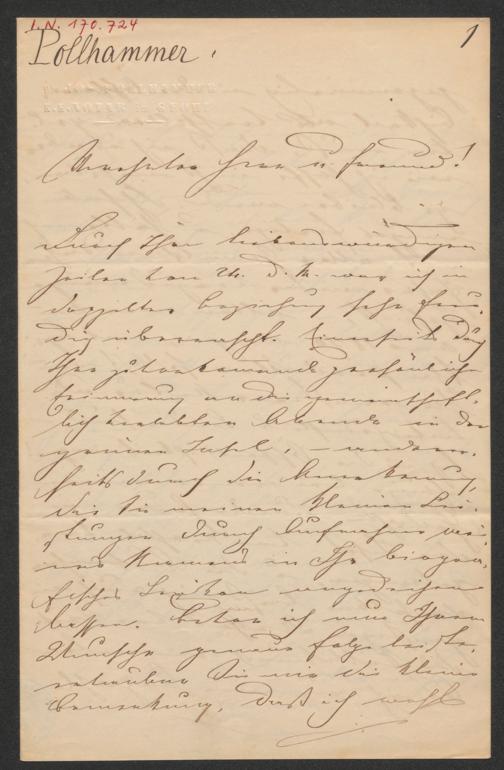 I.N. 170.724
Pollhammer.
1
Verehrter Herr u. Freund!
Durch Ihre liebenswürdigen
Zeilen vom 24. d. M. war ich in
doppelter Beziehung sehr freu-
dig überrascht. Einerseits durch
Ihre zuvorkommend persönliche
Erinnerung an die gemeinschaft-
lich verlebten Abende in der
grünen Insel, – anderer-
seits durch die Anerkennung,
die Sie meinen kleinen Lei-
stungen durch Aufnahme mei-
nes Namens in Ihr biogra-
fisches Lexikon angedeihen
lassen. Bevor ich nun Ihrem
Wunsche genaue Folge leiste,
erlauben Sie mir die kleine
Bemerkung, daß ich wohl